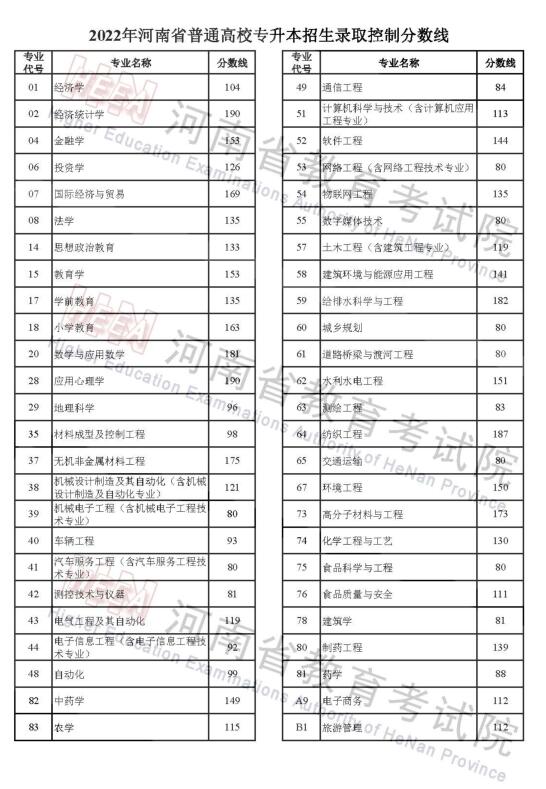 2022年河南省普通高校专升本招生录取控制分数线
专业代号 专业名称 分数线
01 经济学 104
02 经济统计学 190
04 金融学 153
06 投资学 126
07 国际经济与贸易 169
08 法学 135
14 思想政治教育 133
15 教育学 153
17 学前教育 135
18 小学教育 163
20 数学与应用数学 181
28 应用心理学 190
29 地理科学 96
35 材料成型及控制工程 98
37 无机非金属材料工程 175
38 机械设计制造及其自动化（含机械设计制造及自动化专业） 121
39 机械电子工程（含机械电子工程技术专业） 80
40 车辆工程 93
41 汽车服务工程（含汽车服务工程技术专业） 80
42 测控技术与仪器 81
43 电气工程及其自动化 119
44 电子信息工程（含电子信息工程技术专业） 92
48 自动化 99
82 中药学 149
83 农学 115
专业代号 专业名称 分数线
49 通信工程 84
51 计算机科学与技术（含计算机应用工程专业） 113
52 软件工程 144
53 网络工程（含网络工程技术专业） 80
54 物联网工程 135
55 数字媒体技术 80
57 土木工程（含建筑工程专业） 119
58 建筑环境与能源应用工程 141
59 给排水科学与工程 182
60 城乡规划 80
61 道路桥梁与渡河工程 80
62 水利水电工程 151
63 测绘工程 83
64 纺织工程 187
65 交通运输 80
67 环境工程 150
73 高分子材料与工程 173
74 化学工程与工艺 130
75 食品科学与工程 80
76 食品质量与安全 111
78 建筑学 81
80 制药工程 139
81 药学 88
A9 电子商务 112
B1 旅游管理 112
HEEA 河南省教育考试院
Higher Education Examinations Authority of HeNan Province
HEEA 河南省教育考试院
Higher Education Examinations Authority of HeNan Province
HEEA 河南省教育考试院
Higher Education Examinations Authority of HeNan Province